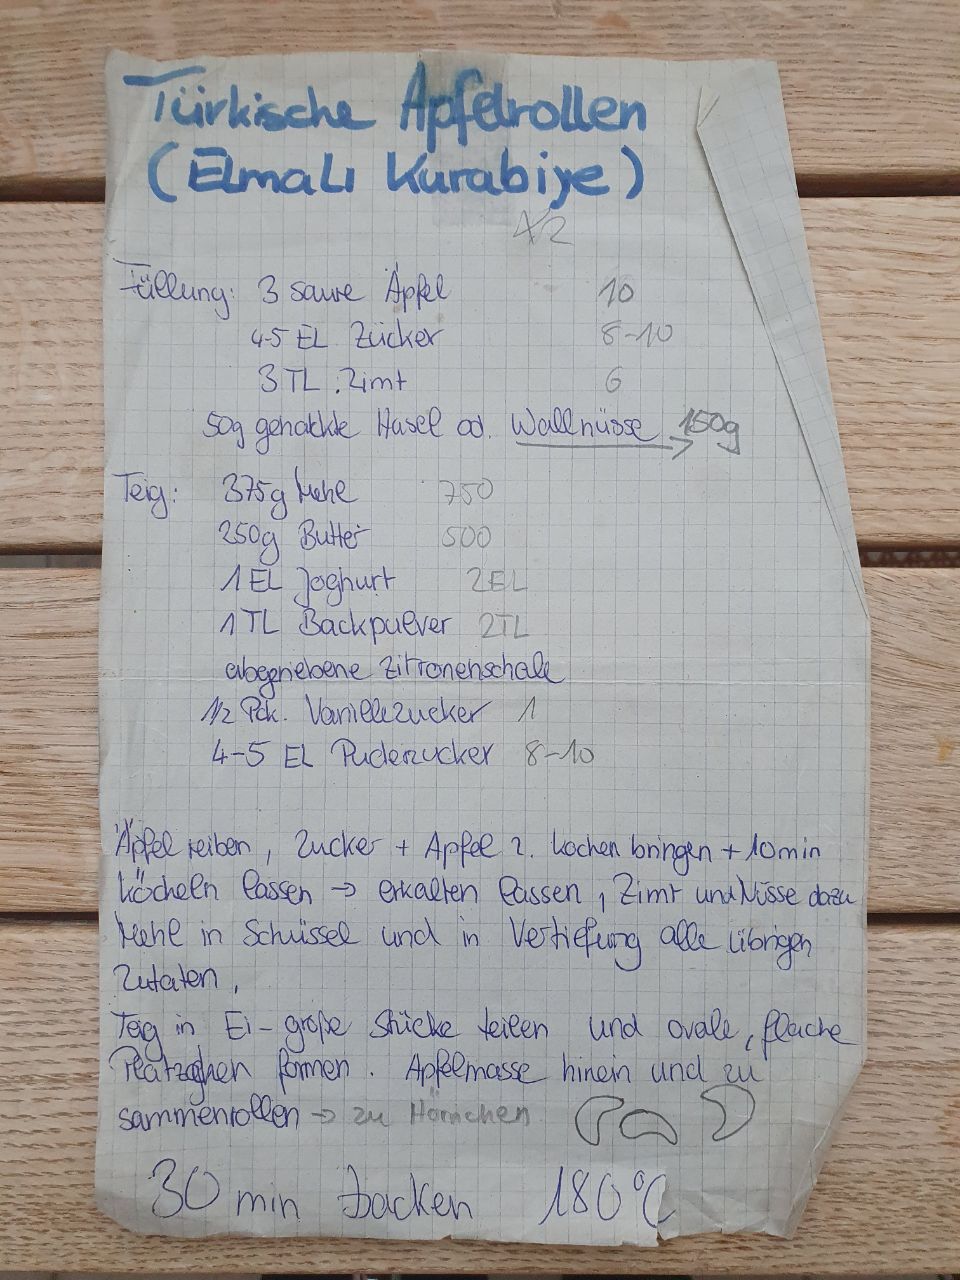 Türkische Apfelrollen
(Elmalı Kurabiye)
x2
Füllung: 3 saure Äpfel 10
4-5 EL Zucker 8-10
3 TL Zimt 6
50g gehackte Hasel od. Wallnüsse → 150g
Teig: 375g Mehl 750
250g Butter 500
1 EL Joghurt 2EL
1 TL Backpulver 2TL
abgeriebene Zitronenschale
1/2 Pck. Vanillezucker 1
4-5 EL Puderzucker 8-10
Äpfel reiben, Zucker + Apfel z. kochen bringen + 10min
köcheln lassen → erkalten lassen, Zimt und Nüsse dazu
Mehl in Schüssel und in Vertiefung alle übrigen
Zutaten,
Teig in Ei-große Stücke teilen und ovale, flache
Plätzchen formen. Apfelmasse hinein und zu
sammenrollen → zu Hörnchen
30 min backen 180°C